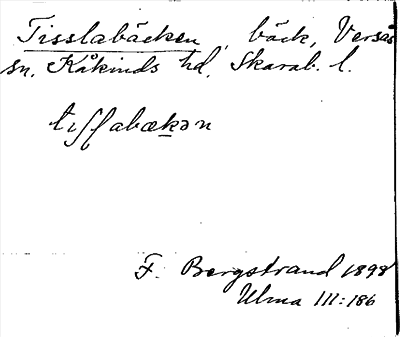 Tisslabäcken, bäck, Versås
sn. Kåkinds hd. Skarab. l.
tıʃʃabækən
F. Bergstrand 1898
Ulma III:186